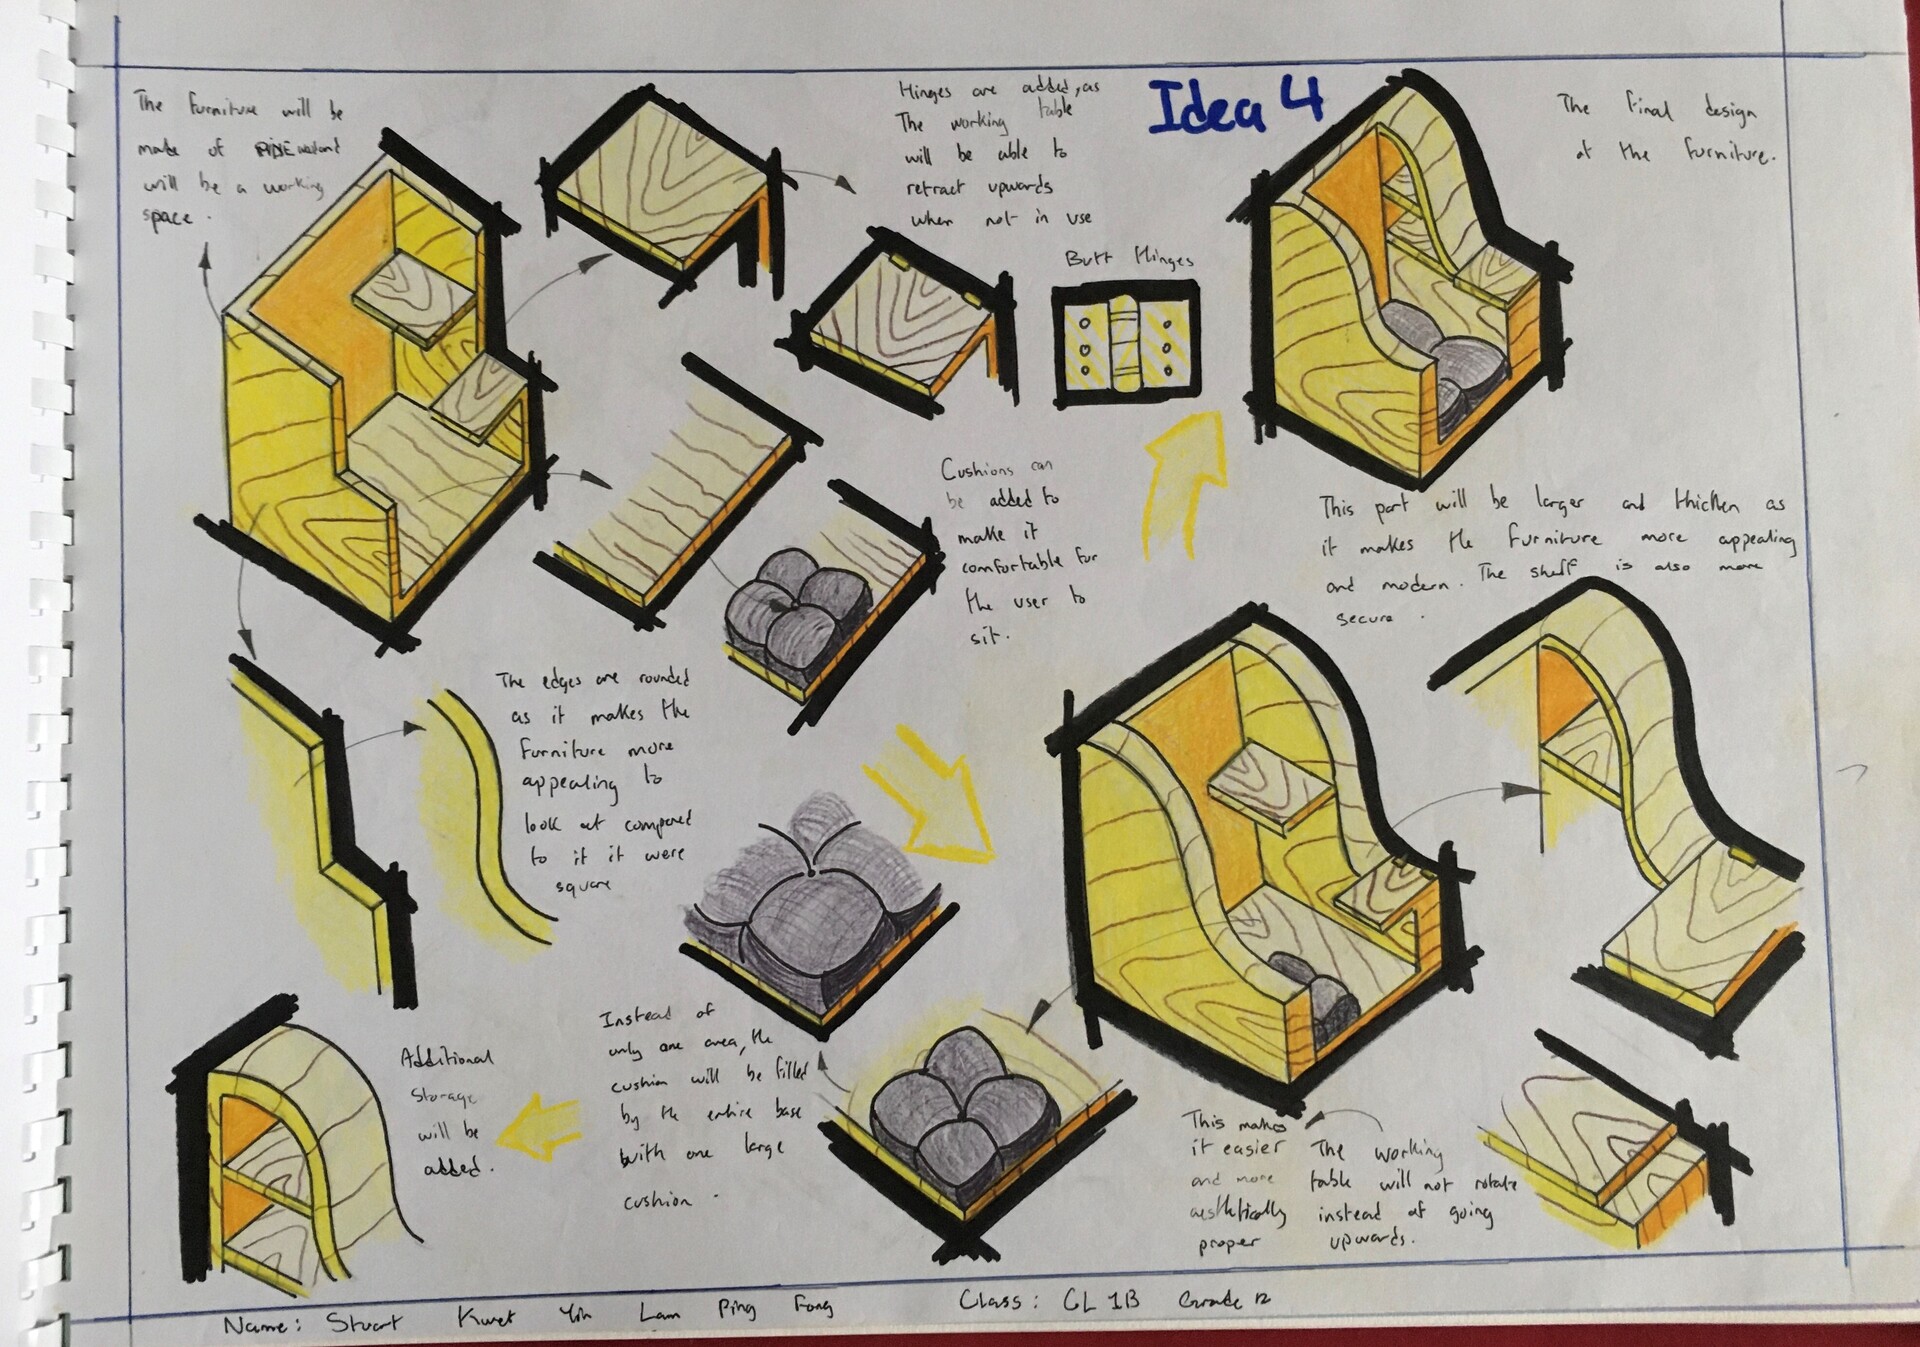 Idea 4
The furniture will be
made of PINE and
will be a working
space.
Hinges are added, as
The working table
will be able to
retract upwards
when not in use
Butt Hinges
The final design
of the furniture.
Cushions can
be added to
make it
comfortable for
the user to
sit.
This part will be larger and thicken as
it makes the furniture more appealing
and modern. The shelf is also more
secure.
The edges are rounded
as it makes the
furniture more
appealing to
look at compared
to it it were
square
Instead of
only one area, the
cushion will be filled
by the entire base
with one large
cushion.
Additional
storage
will be
added.
This makes
it easier
and more
aesthetically
proper
The working
table will not rotate
instead of going
upwards.
Name: Stuart Kwet Yin Lam Ping Fong
Class: CL 1B Grade 12